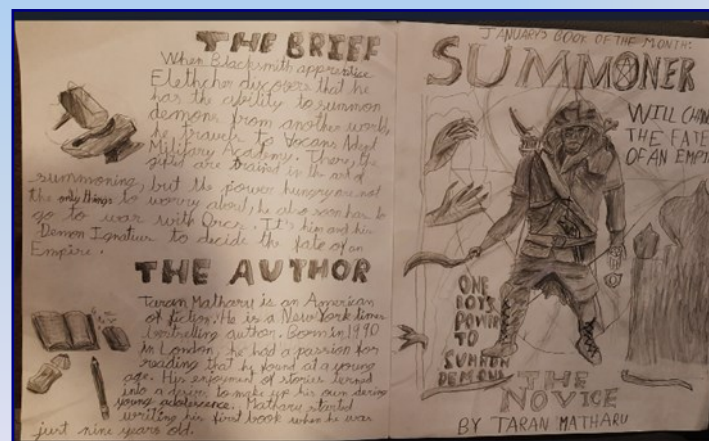 THE BRIEF
When Blacksmith apprentice
Elethcher discovers that he
has the ability to summon
demons from another world,
he travels to Vocans Adept
Military Academy. There, the
gifted are trained in the art of
summoning, but the power hungry are not
the only things to worry about, he also soon has to
go to war with Orcs. It's him and his
Demon Ignatius to decide the fate of an
Empire.
THE AUTHOR
Taran Matharu is an American
of fiction. He is a New York times
bestselling author. Born in 1990
in London, he had a passion for
reading that he found at a young
age. His enjoyment of stories terned
into a desire to make up his own during
young adolescence. Matharu started
writing his first book when he was
just nine years old.
JANUARY'S BOOK OF THE MONTH:
SUMMONER
WILL
THE FATE
OF AN
ONE
BOYS
POWER
TO
SUMMON
DEMONS
THE
NOVICE
BY TARAN MATHARU